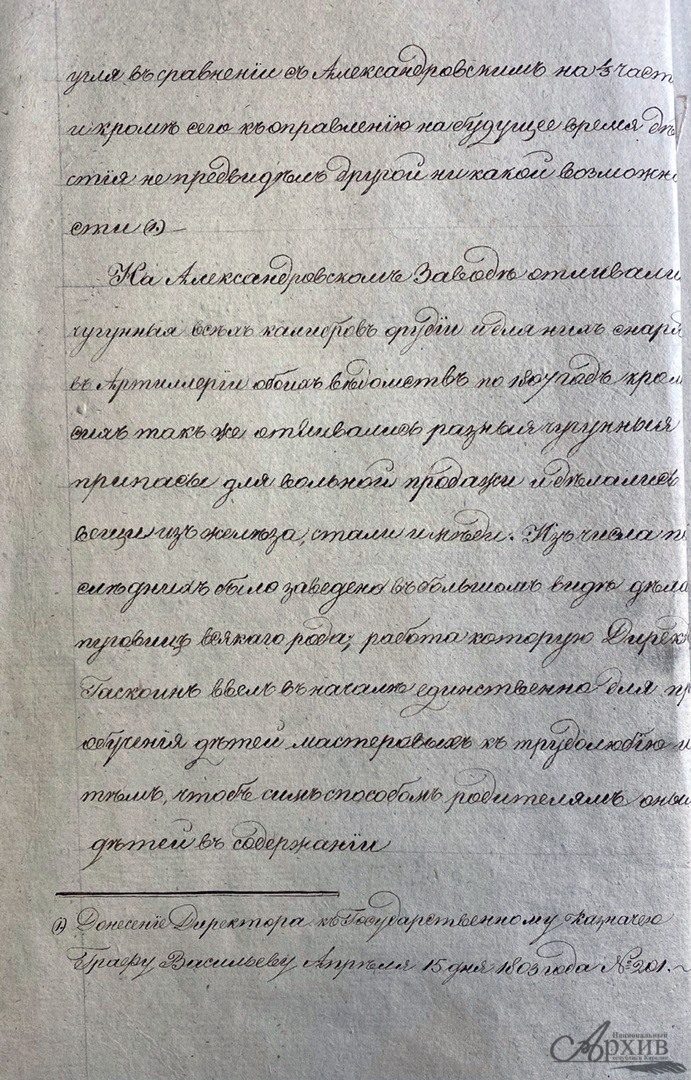 угля въ сравненіи съ Александровскимъ на ⅓ част
и кромѣ сего къ оправленію на будущее время дѣ
ствія не предвидѣлъ другой никакой возможно
сти (1.)
На Александровскомъ Заводѣ отливали
чугунныя всѣхъ калибровъ орудіи и для нихъ снаря
въ Артиллеріи обоихъ вѣдомствъ по 1807 годъ кром
сихъ такъ же отливались разныя чугунныя
припасы для вольной продажи и дѣлались
вещи изъ желѣза, стали и мѣди. Изъ числа по
слѣднихъ было заведено въ большомъ видѣ дѣла
пуговицъ всякаго рода, работа которую Дирек
Гаскоинъ ввелъ въ началѣ единственно для пр
обученія дѣтей мастеровыхъ къ трудолюбію и
тѣмъ, чтобъ симъ способомъ родителямъ оны
дѣтей въ содержаніи
1) Донесеніе Директора къ Государственному Казначею
Графу Васильеву Апрѣля 15 дня 1803 года № 201.
Национальный
Архив
республики Карелия